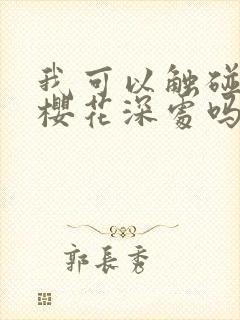 我可以触碰
樱花深处吗
郭長秀